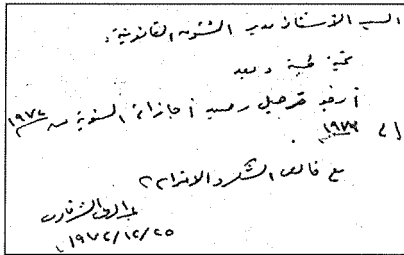 السيد الأستاذ مدير الشئون القانونية
تحية طيبة وبعد
أرغب ترحيل رصيد أجازاتى السنوية من ١٩٧٢
إلى ١٩٧٣
مع فائق الشكر والاحترام
١٩٧٢/١٢/٢٥